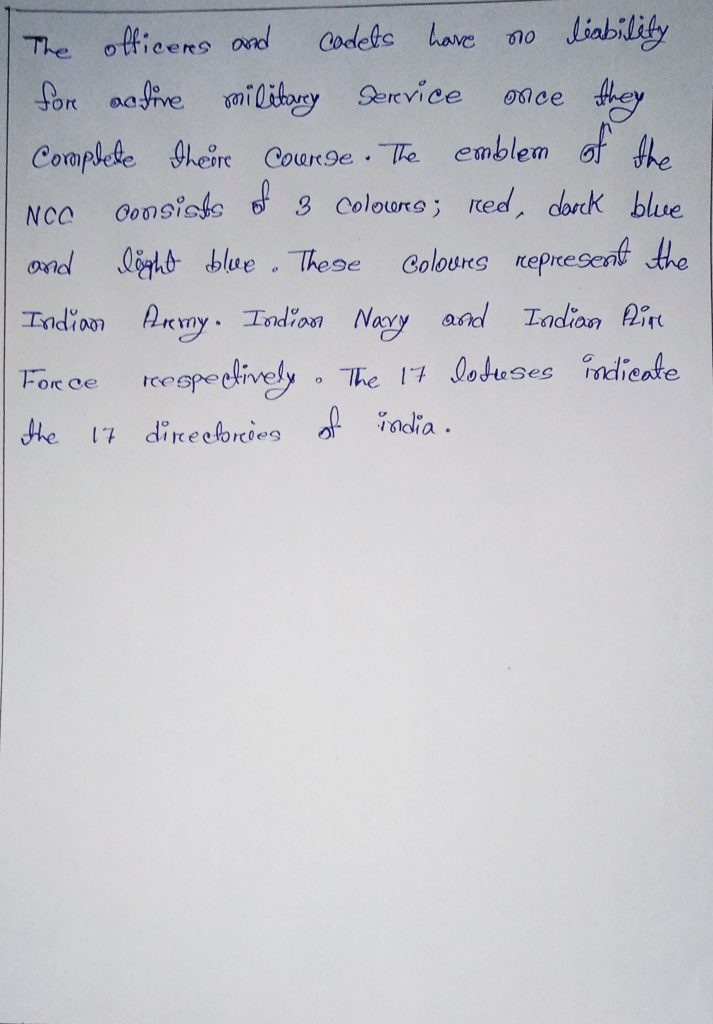 The officers and cadets have no liability
for active military service once they
Complete their course. The emblem of the
NCC consists of 3 colours; red, dark blue
and light blue. These colours represent the
Indian Army. Indian Navy and Indian Air
Force respectively. The 17 lotuses indicate
the 17 directories of india.